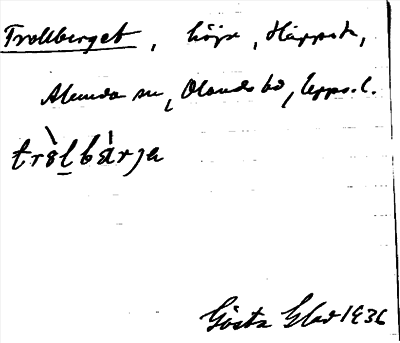 Trollberget, höjd, Häppst,
Alunda sn, Olands hd, Upps. l.
tròlbärja
Gösta Glad 1936